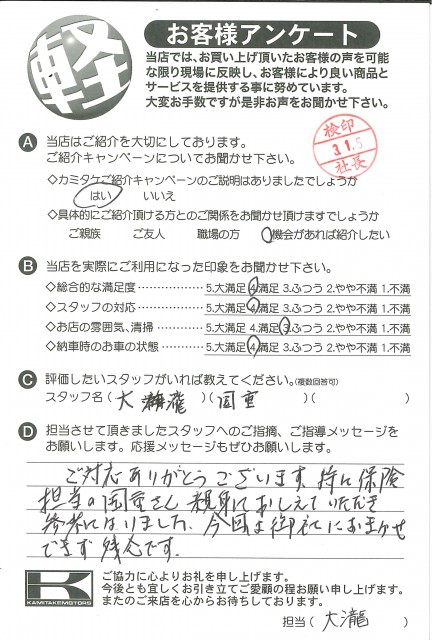 軽
お客様アンケート
当店では、お買い上げ頂いたお客様の声を可能
な限り現場に反映し、お客様により良い商品と
サービスを提供する事に努めています。
大変お手数ですが是非お声をお聞かせ下さい。
検印
3.1.5
社長
A 当店はご紹介を大切にしております。
ご紹介キャンペーンについてお聞かせ下さい。
◇カミタケご紹介キャンペーンのご説明はありましたでしょうか
はい いいえ
◇具体的にご紹介頂ける方とのご関係をお聞かせ頂けますでしょうか
ご親族 ご友人 職場の方 機会があれば紹介したい
B 当店を実際にご利用になった印象をお聞かせ下さい。
◇総合的な満足度……………… 5.大満足 4.満足 3.ふつう 2.やや不満 1.不満
◇スタッフの対応……………… 5.大満足 4.満足 3.ふつう 2.やや不満 1.不満
◇お店の雰囲気、清掃………… 5.大満足 4.満足 3.ふつう 2.やや不満 1.不満
◇納車時のお車の状態………… 5.大満足 4.満足 3.ふつう 2.やや不満 1.不満
C 評価したいスタッフがいれば教えてください。(複数回答可)
スタッフ名(大瀧)(国重)( )
D 担当させて頂きましたスタッフへのご指摘、ご指導メッセージを
お願いします。応援メッセージもぜひお願いします。
ご対応ありがとうございます。特に保険
担当の国重さん親身におしえていただき
参考になりました。今回は御社におまかせ
できず残念です。
K
KAMITAKEMOTORS
ご協力に心よりお礼を申し上げます。
今後とも宜しくお引き立てご愛顧の程お願い申し上げます。
またのご来店を心からお待ちしております。
担当(大瀧)